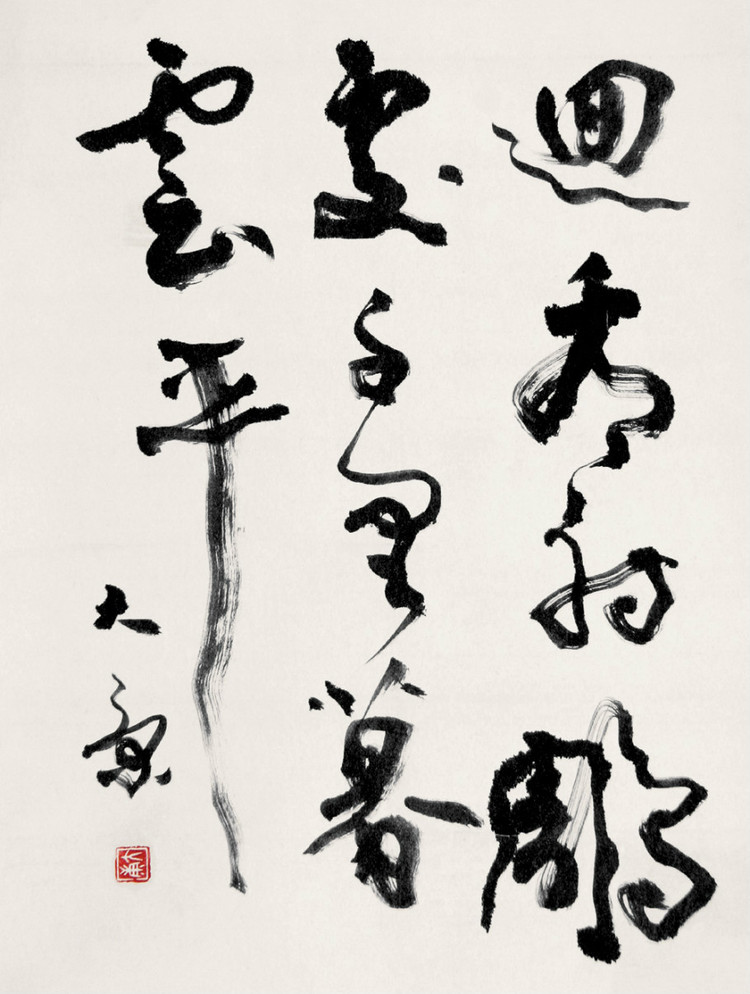 迴看射鵰
處千里暮
雲平
大